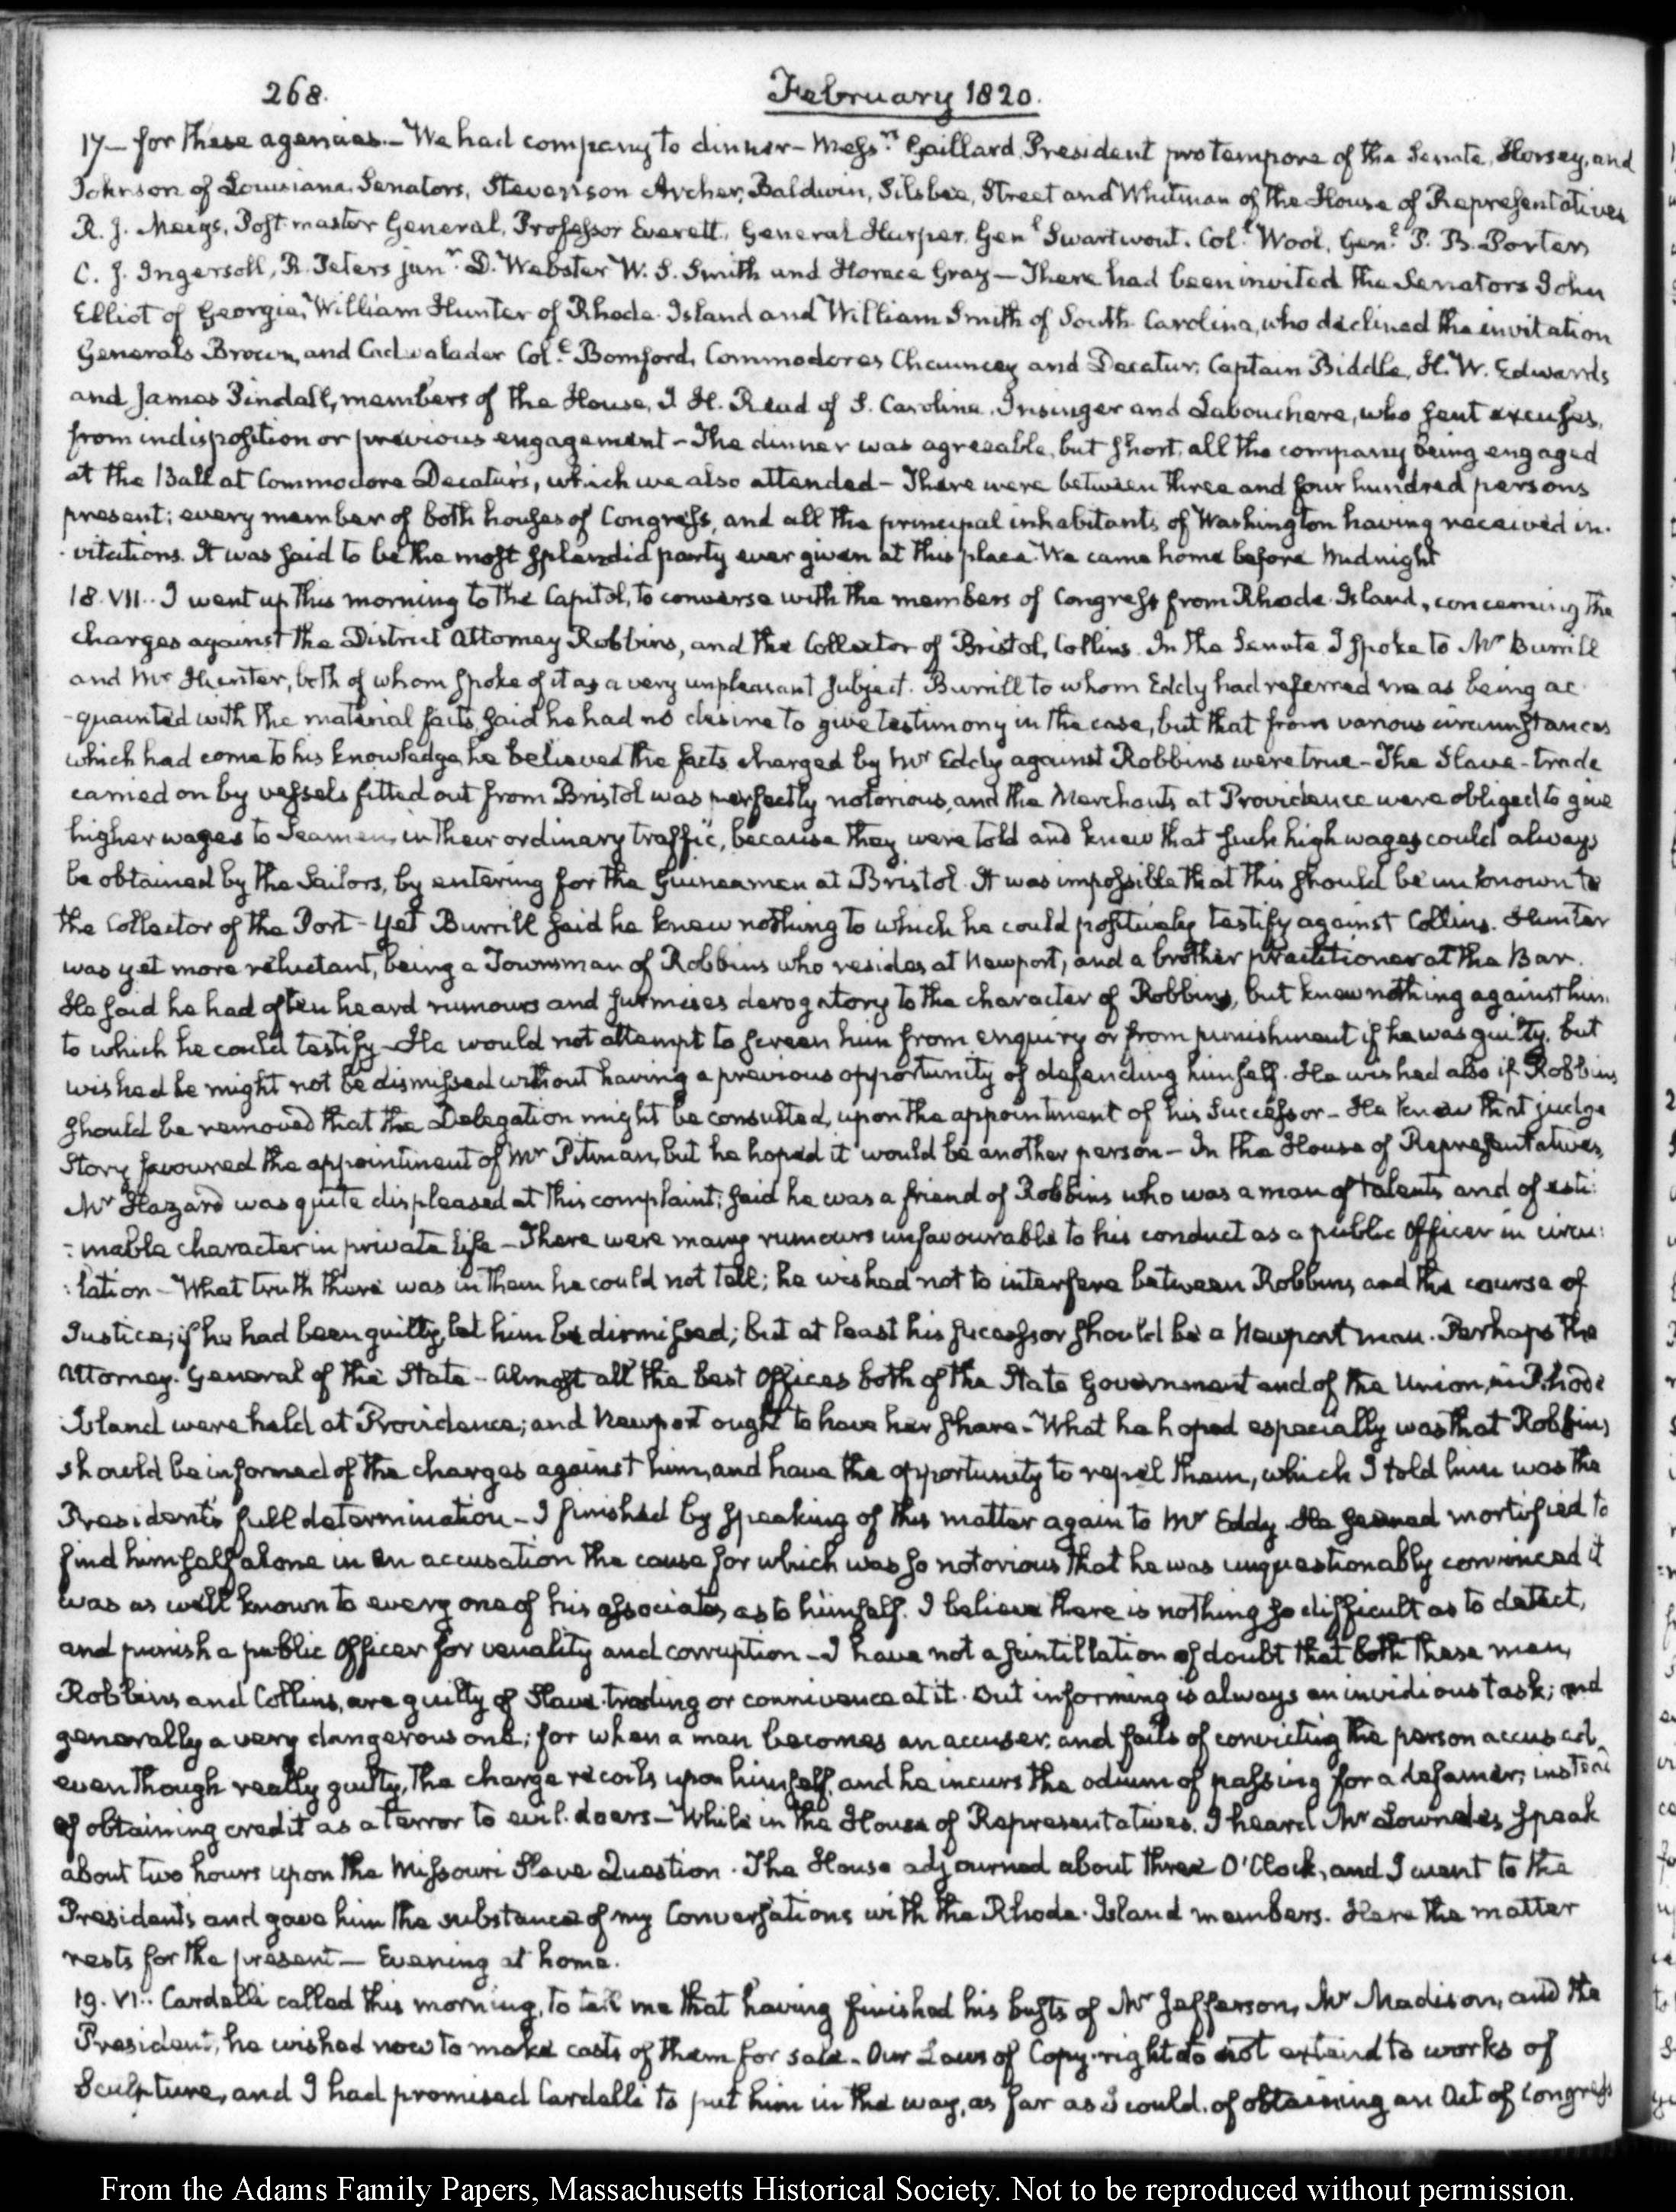 268.
February 1820.
17— for these agencies.— We had company to dinner— Messrs. Gaillard, President pro tempore of the Senate, Horsey, and
Johnson of Louisiana, Senators, Stevenson Archer, Baldwin, Silsbee, Street and Whitman of the House of Representatives
R. J. Meigs, Post-master General, Professor Everett, General Harper, Genl. Swartwout, Coll. Wool, Genl. P. B. Porter,
C. J. Ingersoll, R. Peters junr. D. Webster W. S. Smith and Horace Gray— There had been invited the Senators John
Elliot of Georgia, William Hunter of Rhode-Island and William Smith of South-Carolina, who declined the invitation
Generals Brown, and Cadwalader Coll. Bomford, Commodores Chauncey and Decatur, Captain Biddle, H. W. Edwards
and James Pindall, members of the House, J. H. Read of S. Carolina. Insinger and Labouchere, who sent excuses,
from indisposition or previous engagement— The dinner was agreeable, but short, all the company being engaged
at the Ball at Commodore Decatur's, which we also attended— There were between three and four hundred persons
present; every member of both houses of Congress, and all the principal inhabitants of Washington having received in-
-vitations. It was said to be the most splendid party ever given at this place. We came home before Midnight
18. VII.. I went up this morning to the Capitol, to converse with the members of Congress from Rhode-Island, concerning the
charges against the District Attorney Robbins, and the Collector of Bristol, Collins. In the Senate I spoke to Mr Burrill
and Mr Hunter, both of whom spoke of it as a very unpleasant subject. Burrill to whom Eddy had referred me as being ac-
-quainted with the material facts, said he had no desire to give testimony in the case, but that from various circumstances
which had come to his knowledge he believed the facts charged by Mr Eddy against Robbins were true— The Slave-trade
carried on by vessels fitted out from Bristol was perfectly notorious, and the Merchants at Providence were obliged to give
higher wages to Seamen, in their ordinary traffic, because they were told and knew that such high wages could always
be obtained by the Sailors, by entering for the Guineamen at Bristol. It was impossible that this should be unknown to
the Collector of the Port— Yet Burrill said he knew nothing to which he could positively testify against Collins. Hunter
was yet more reluctant, being a Townsman of Robbins who resides at Newport, and a brother practitioner at the Bar.
He said he had often heard rumours and surmises derogatory to the character of Robbins, but knew nothing against him,
to which he could testify— He would not attempt to screen him from enquiry or from punishment if he was guilty, but
wished he might not be dismissed without having a previous opportunity of defending himself. He wished also if Robbins
should be removed that the Delegation might be consulted, upon the appointment of his Successor— He knew that judge
Story favoured the appointment of Mr Pitman, but he hoped it would be another person— In the House of Representatives,
Mr Hazard was quite displeased at this complaint; said he was a friend of Robbins who was a man of talents and of esti:
:mable character in private life— There were many rumours unfavourable to his conduct as a public Officer in circu:
:lation— What truth there was in them he could not tell; he wished not to interfere between Robbins, and the course of
Justice; if he had been guilty, let him be dismissed; but at least his successor should be a Newport man. Perhaps the
Attorney-General of the State— Almost all the best Offices both of the State Government and of the Union, in Rhode
Island were held at Providence; and Newport ought to have her share— What he hoped especially was that Robbins,
should be informed of the charges against him, and have the opportunity to repel them, which I told him was the
President's full determination— I finished by speaking of this matter again to Mr Eddy. He seemed mortified to
find himself alone in an accusation the cause for which was so notorious that he was unquestionably convinced it
was as well known to every one of his associates, as to himself. I believe there is nothing so difficult as to detect,
and punish a public Officer for venality and corruption— I have not a scintillation of doubt that both these men,
Robbins and Collins, are guilty of Slave-trading or connivance at it. But informing is always an invidious task; and
generally a very dangerous one; for when a man becomes an accuser, and fails of convicting the person accused,
even though really guilty, the charge recoils upon himself, and he incurs the odium of passing for a defamer, instead
of obtaining credit as a terror to evil-doers— While in the House of Representatives, I heard Mr Lowndes, speak
about two hours upon the Missouri Slave Question. The House adjourned about three O'Clock, and I went to the
President's and gave him the substance of my Conversations with the Rhode-Island members. Here the matter
rests for the present— Evening at home.
19. VI.. Cardelli called this morning, to tell me that having finished his busts of Mr Jefferson, Mr Madison, and the
President, he wished now to make casts of them for sale— Our Laws of Copy-right do not extend to works of
Sculpture, and I had promised Cardelli to put him in the way, as far as I could, of obtaining an Act of Congress
From the Adams Family Papers, Massachusetts Historical Society. Not to be reproduced without permission.